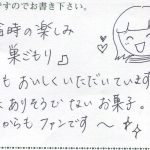 ですのでお書き下さい。
時の楽しみ
巣ごもり』
も おいしくいただいています
ありそうで ない お菓子。
からも ファンです〜